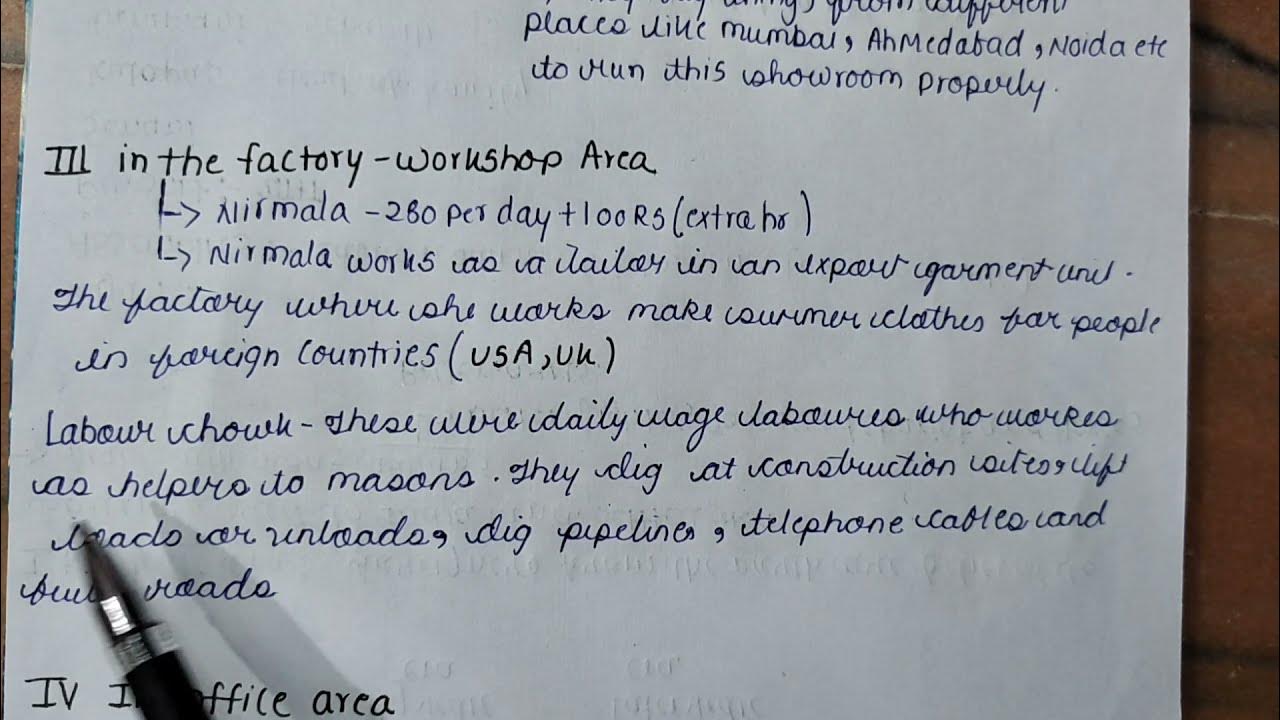 from different
places like mumbai, AhMedabad, Noida etc
to run this showroom properly.
III in the factory - workshop Area
↳ Nirmala - 280 per day + 100 RS (extra hr)
↳ Nirmala works as a Tailor in an export garment unit.
The factory where she works make summer clothes for people
in foreign countries (USA, UK)
Labour chowk - These were daily wage laboures who workes
as helpers to masons. They dig at construction sites, lift
loads or unloads, dig pipelines, telephone cables and
roads
IV office area